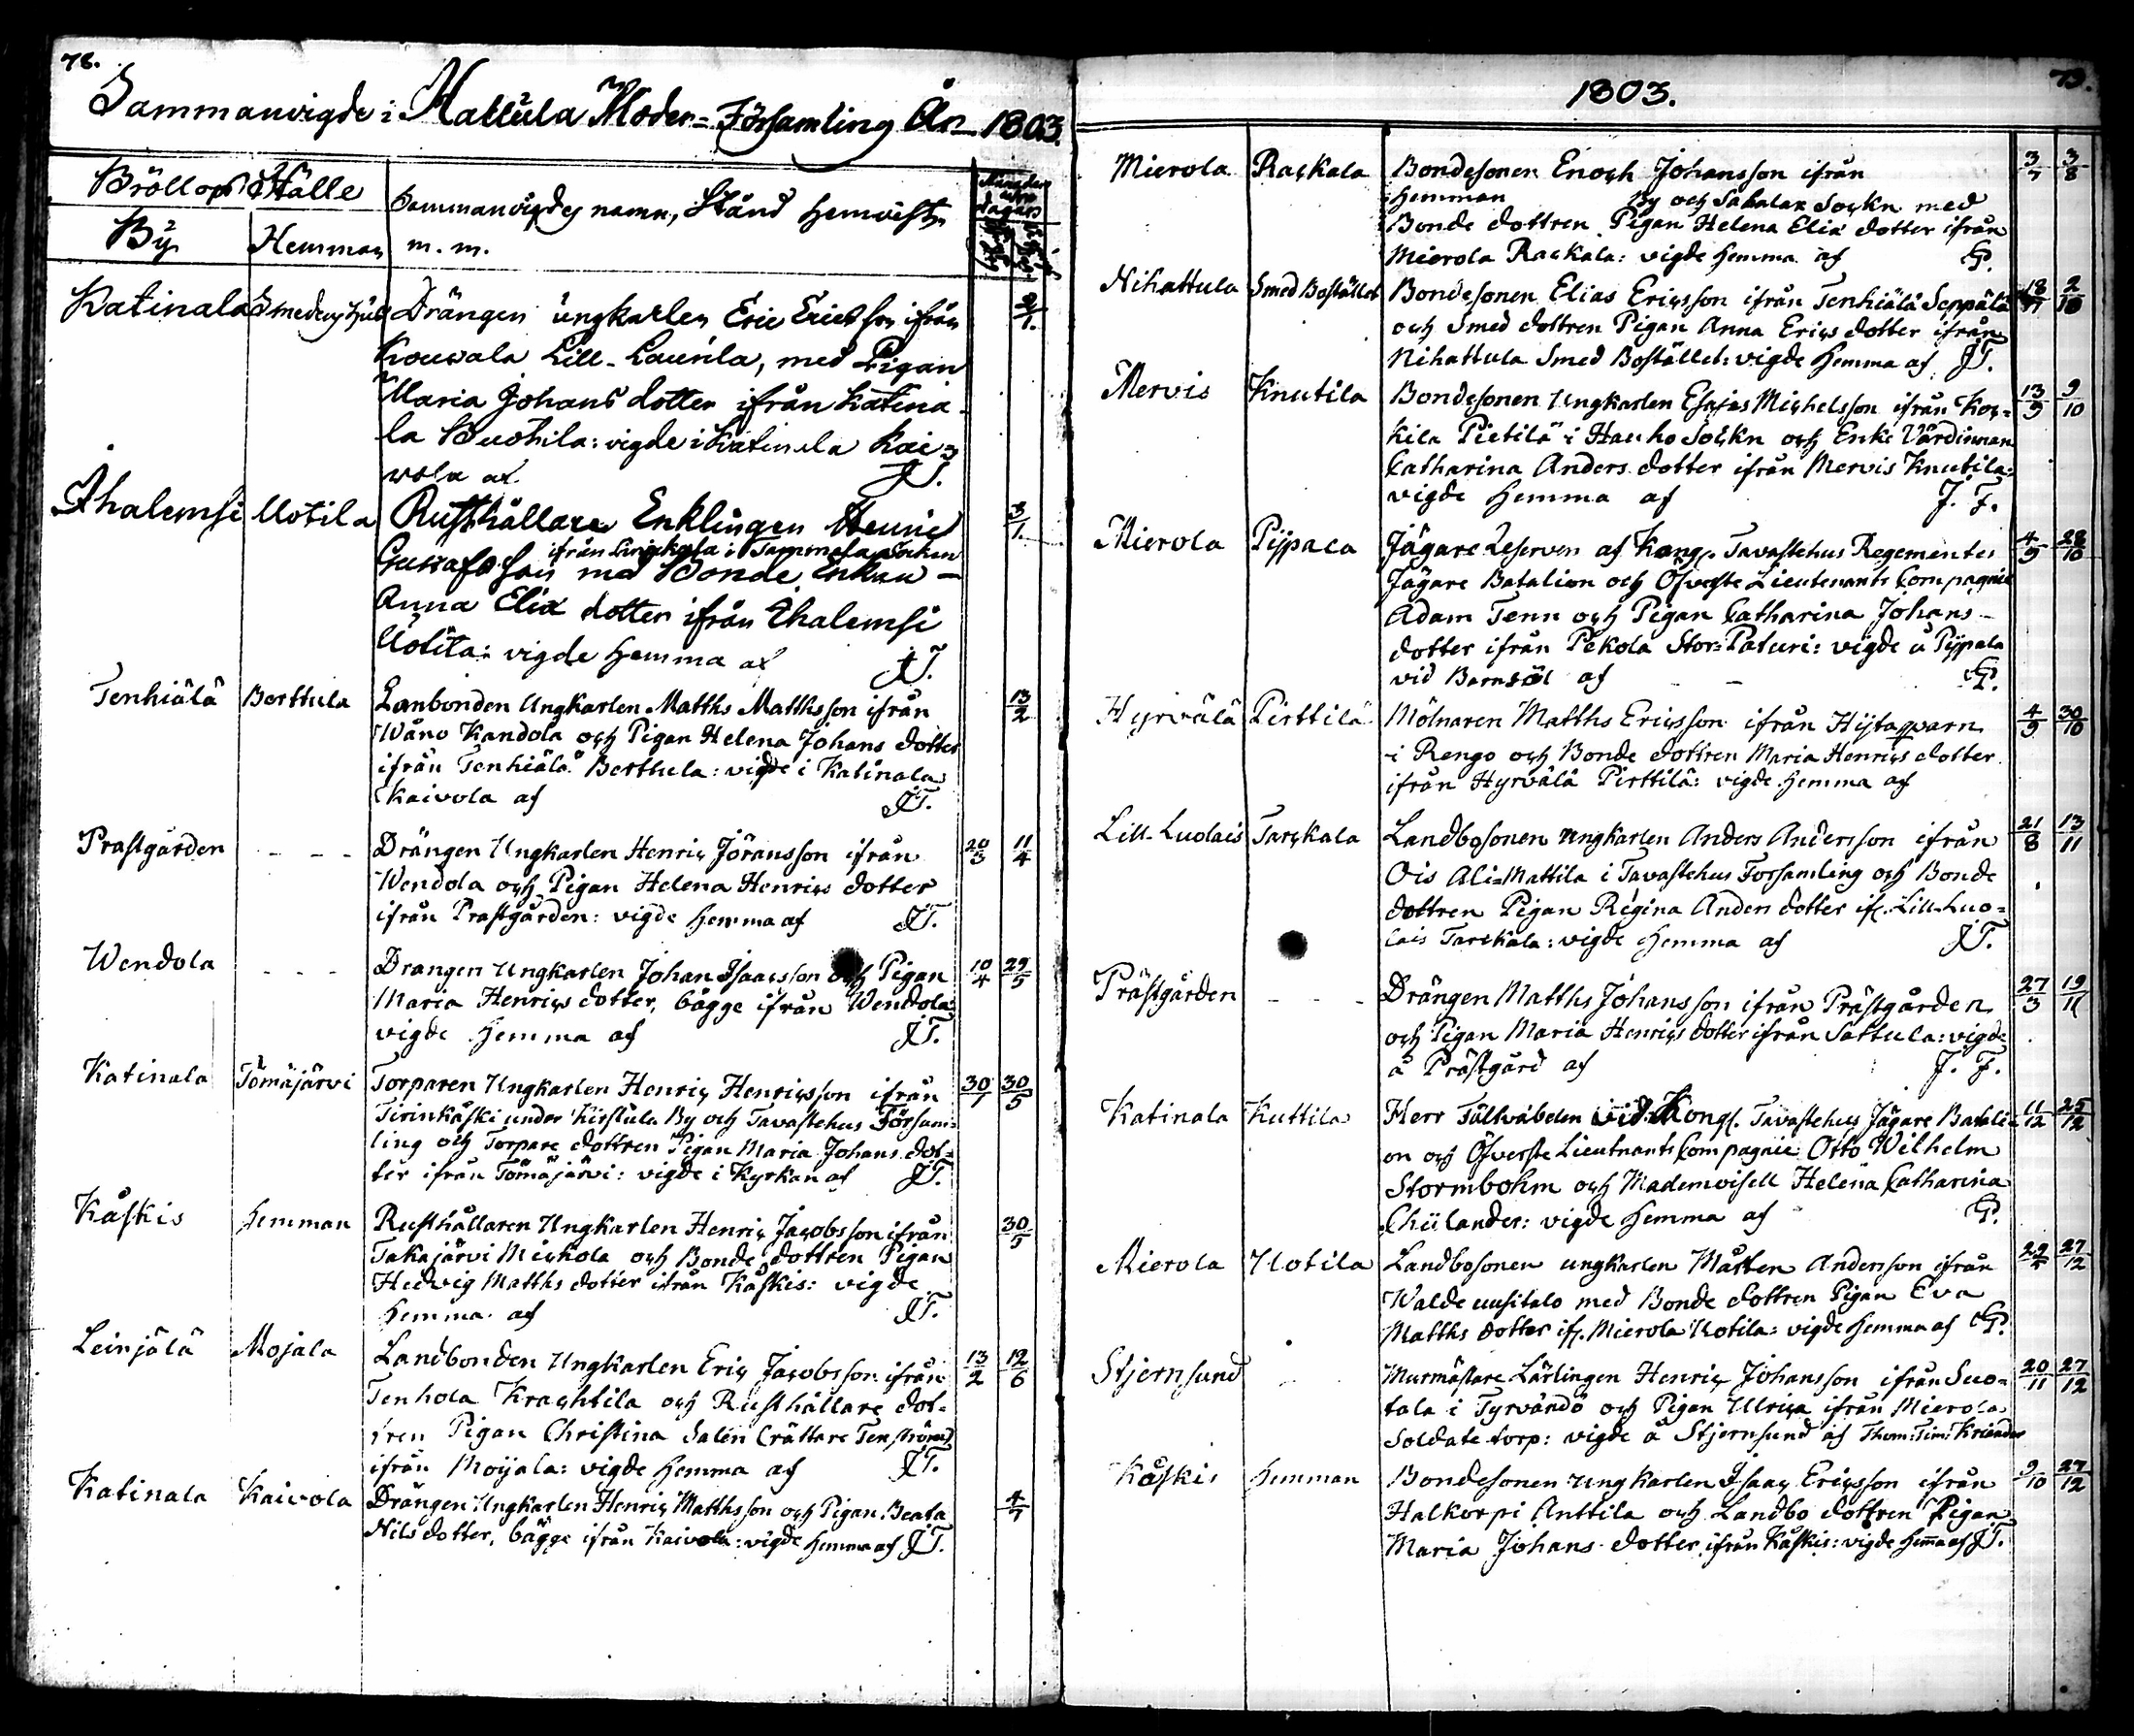 78.
Sammanvigde i Hattula Moder=Församling År 1803.
Bröllops Ställe
Sammanvigdes namn, Stånd hemvister
By Hemman m. m.
Katinala Smedens hus Drängen ungkarlen Eric Ericsson ifrån 2/1.
Kouvala Lill-Laurila, med Pigan
Maria Johans dotter ifrån Katina-
la Buotila: vigde i Katinala Kai=
vola af J.T.
Ihalemsi Uotila Rusthållare Enklingen Henric 3/1.
ifrån i Tammela Socken
Gustafsson med Bonde Enkan
Anna Eliæ dotter ifrån Ihalemsi
Uotila: vigde hemma af J.T.
Tenhiälä Berttula Lanbonden Ungkarlen Matths Matthsson ifrån 13/2
Wåno Kandola och Pigan Helena Johans dotter
ifrån Tenhiälä Berttula: vigde i Katinala
Kaivola af J.T.
Prastgården - - - Drängen Ungkarlen Henric Jöransson ifrån 20/3 11/4
Wendola och Pigan Helena Henrics dotter
ifrån Prastgården: vigde hemma af J.T.
Wendola - - - Drangen Ungkarlen Johan Isaacsson och Pigan 10/4 29/5
Maria Henrics dotter, bägge ifrån Wendola:
vigde hemma af J.T.
Katinala Tömäjärvi Torparen Ungkarlen Henric Henricsson ifrån 30/1 30/5
Tirinkåski under Kirstula By och Tavastehus Försam=
ling och Torpare dottren Pigan Maria Johans dot=
ter ifrån Tömäjärvi: vigde i Kyrkan af J.T.
Kåskis hemman Rusthållaren Ungkarlen Henric Jacobsson ifrån 30/5
Takajärvi Mickola och Bonde dottren Pigan
Hedvig Matths dotter ifrån Kåskis: vigde
hemma af J.T.
Leinjälä Mojala Landbonden Ungkarlen Eric Jacobsson ifrån 13/2 12/6
Tenhola Krachtila och Rusthållare dot=
tren Pigan Christina Salen
ifrån Moijala: vigde hemma af J.T.
Katinala Kaivola Drängen Ungkarlen Henric Matthsson och Pigan Beata 4/7
Nils dotter, bägge ifrån Kaivola: vigde hemma af J.T.
79.
1803.
Mierola Rackala Bondesonen Enoch Johansson ifrån 3/7 3/8
hemman By och Sahalax Sockn med
Bonde dottren Pigan Helena Eliæ dotter ifrån
Mierola Rackala: vigde hemma af G.
Nihattula Smed Bostället Bondesonen Elias Ericsson ifrån Tenhiälä Seppälä 18/ 2/10
och Smed dottren Pigan Anna Erics dotter ifrån
Nihattula Smed Bostället: vigde hemma af J.T.
Mervis Knutila Bondesonen Ungkarlen Esaias Michelsson ifrån Kos= 13/9 9/10
kila Pietilä i Hauho Sockn och Enke Värdinnan
Catharina Anders dotter ifrån Mervis Knutila:
vigde hemma af J. F.
Mierola Pijpala Jägare Reserven af Kongs. Tavastehus Regementes 4/9 28/10
Jägare Batalion och Öfverste Lieutenants Compagnie
Adam Tenn och Pigan Catharina Johans-
dotter ifrån Pekola Stor=Paturi: vigde å Pijpala
vid Barnsöl af G.
Hyrvälä Pirttilä Mölnaren Matths Ericsson ifrån Hijtaqvarn 4/9 30/10
i Rengo och Bonde dottren Maria Henrics dotter
ifrån Hyrvälä Pirttilä: vigde hemma af
Lill-Luolais Tarckala Landbosonen ungkarlen Anders Andersson ifrån 21/8 13/11
Ois Ali=Mattila i Tavastehus Forsamling och Bonde
dottren Pigan Regina Anders dotter ifr. Lill-Luo=
lais Tarckala: vigde hemma af J.T.
Prästgården - - - Drängen Matths Johansson ifrån Prästgården 27/3 19/11
och Pigan Maria Henrics dotter ifrån Sattula: vigde
å Prästgård af J. F.
Katinala Kuttila Herr Fältväbelen vid Kongs. Tavastehus Jägare Batali- 11/12 25/12
on och Öfverste Lieutnants Compagnie Otto Wilhelm
Stormbohm och Mademoisell Helena Catharina
Chiilander: vigde hemma af G.
Mierola Uotila Landbosonen ungkarlen Mårten Andersson ifrån 27/12
Walde uusitalo med Bonde dottren Pigan Eva
Matths dotter ifr. Mierola Uotila: vigde hemma af G.
Stjernsund Murmästare Lärlingen Henric Johansson ifrån Suo= 20/11 27/12
tala i Tyrvändö och Pigan Ulrica ifrån Mierola
Soldate torp: vigde å Stjernsund af Thom: Tim: Kriander
Kåskis hemman Bondesonen ungkarlen Isaac Ericsson ifrån 9/10 27/12
Halkorpi Anttila och Landbo dottren Pigan
Maria Johans dotter ifrån Kåskis: vigde hemma af J.T.